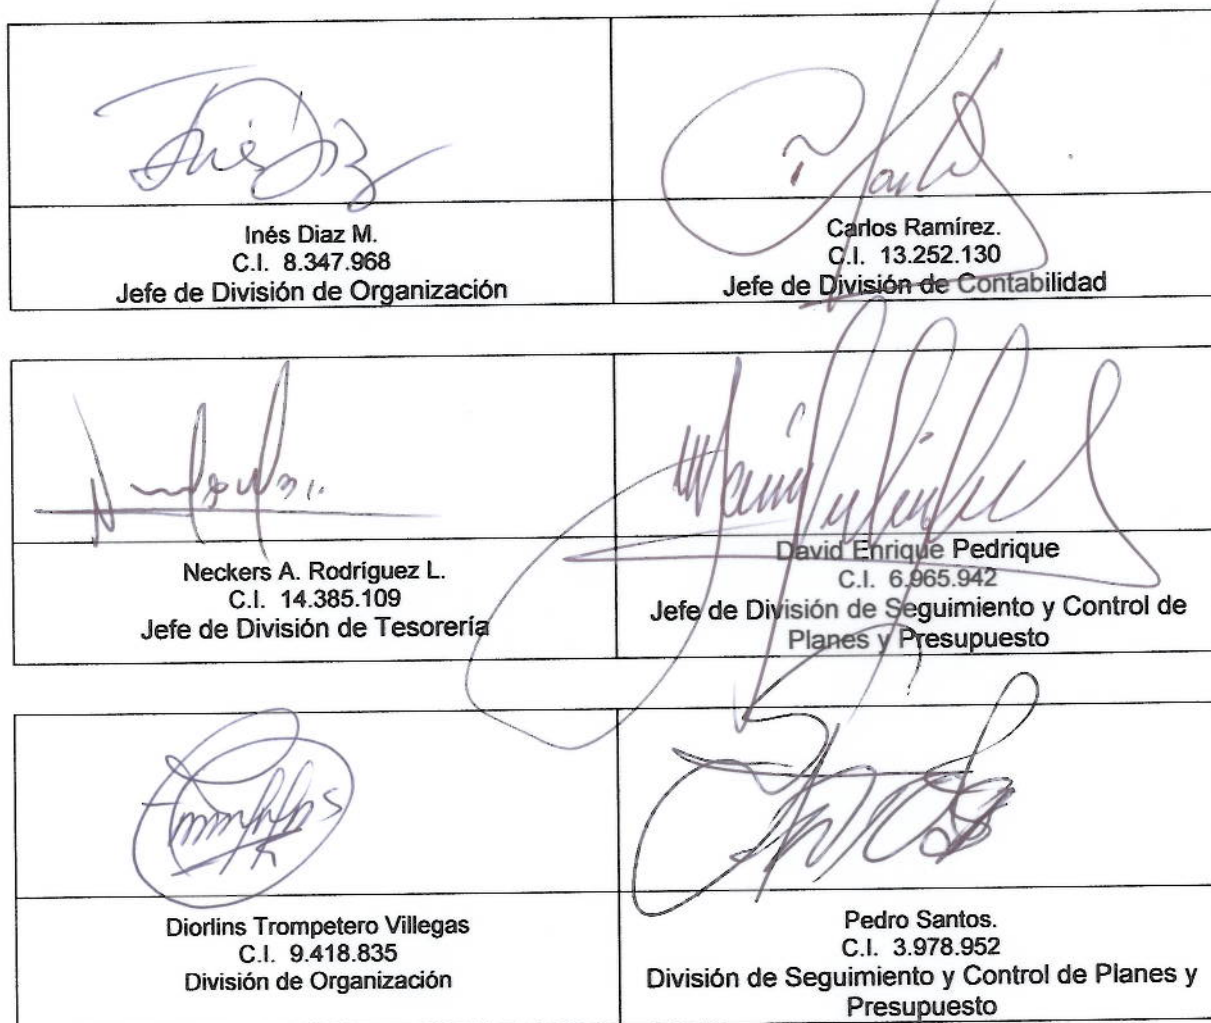 Inés Diaz M.
C.I. 8.347.968
Jefe de División de Organización
Carlos Ramírez.
C.I. 13.252.130
Jefe de División de Contabilidad
Neckers A. Rodríguez L.
C.I. 14.385.109
Jefe de División de Tesorería
David Enrique Pedrique
C.I. 6.965.942
Jefe de División de Seguimiento y Control de
Planes y Presupuesto
Diorlins Trompetero Villegas
C.I. 9.418.835
División de Organización
Pedro Santos.
C.I. 3.978.952
División de Seguimiento y Control de Planes y
Presupuesto